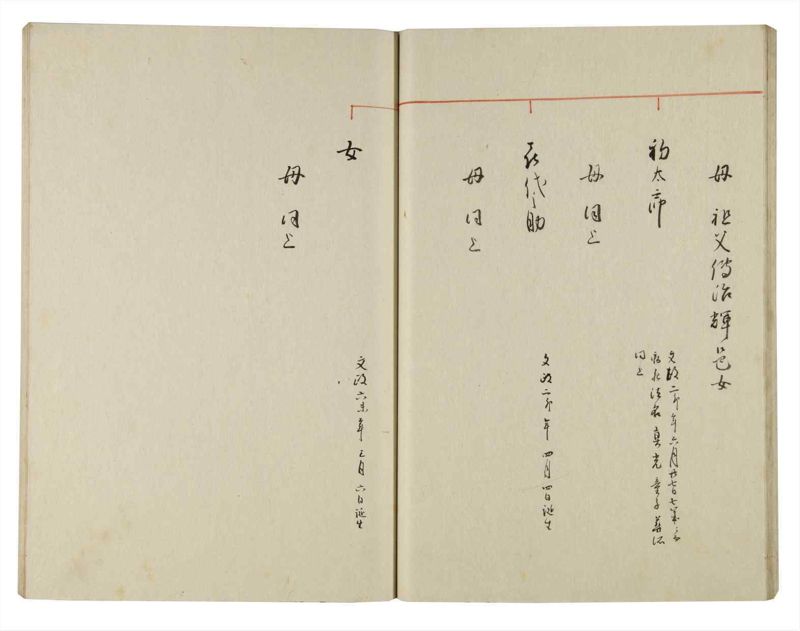 母 祖父傳治輝邑女
初太郎
文政二卯年六月廿七日七歳ニ而
病死法名真光童子葬所
同上
母 同上
喜代之助
文政二卯年四月四日誕生
母 同上
女
文政六未年三月六日誕生
母 同上